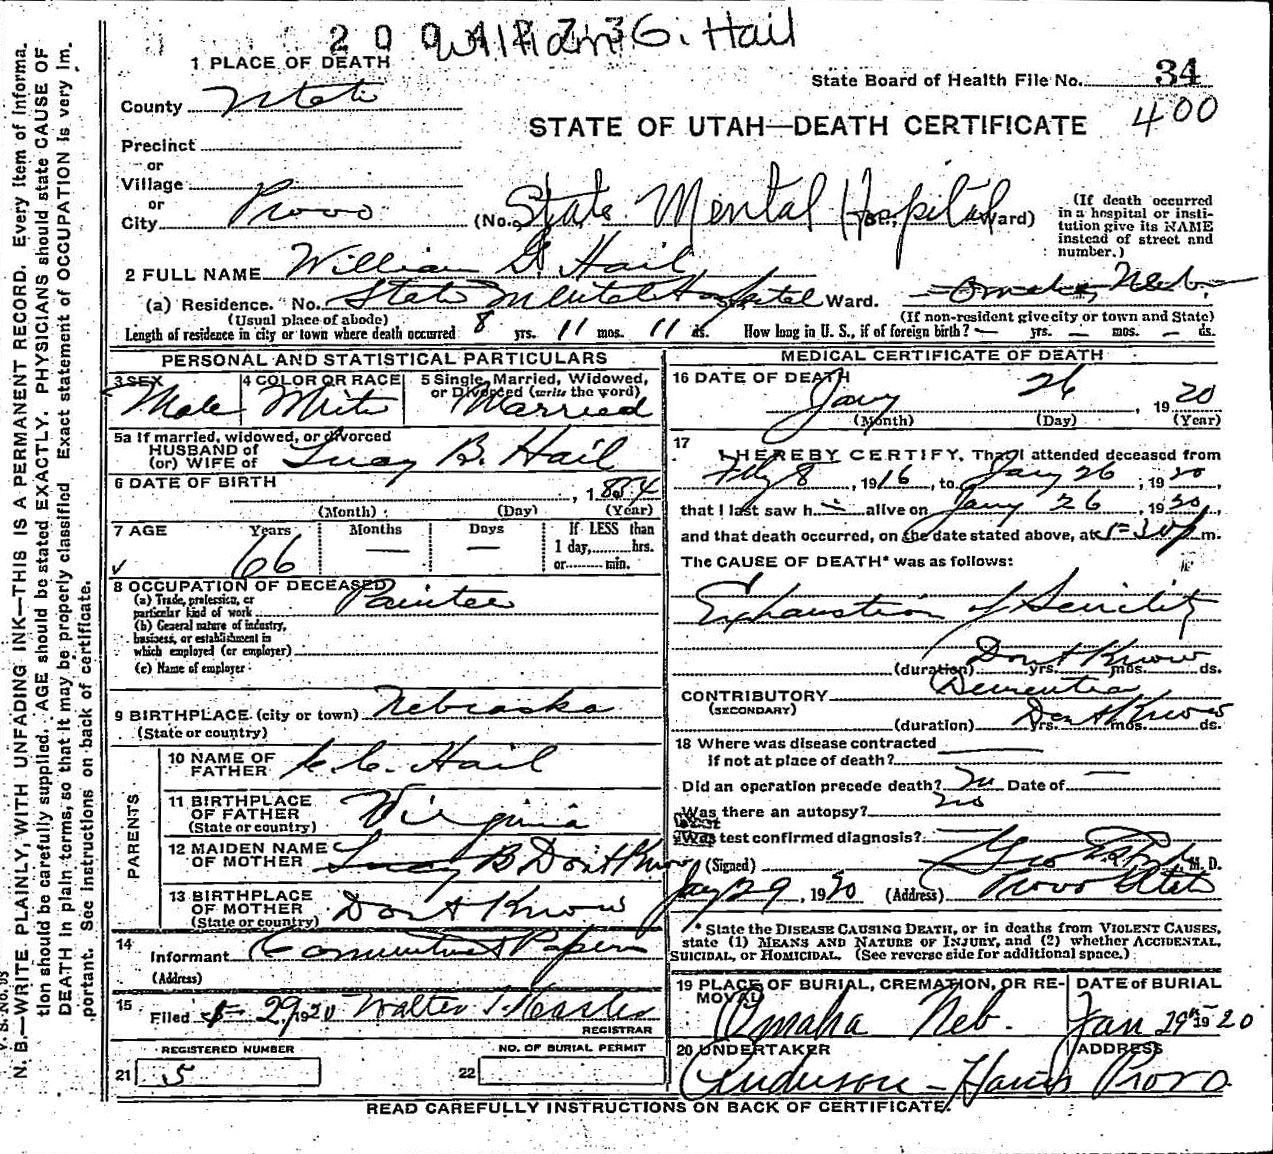 William G. Hail
1 PLACE OF DEATH
State Board of Health File No. 34
County Utah
400
STATE OF UTAH—DEATH CERTIFICATE
Precinct
or
Village
or
City Provo (No. State Mental Hospital Ward)
(If death occurred in a hospital or institution give its NAME instead of street and number.)
2 FULL NAME William G. Hail
(a) Residence. No. State Mental Hospital Ward. Omaha, Neb.
(Usual place of abode) (If non-resident give city or town and State)
Length of residence in city or town where death occurred 8 yrs. 11 mos. 11 ds. How long in U. S., if of foreign birth? — yrs. — mos. — ds.
PERSONAL AND STATISTICAL PARTICULARS
3 SEX Male
4 COLOR OR RACE White
5 Single, Married, Widowed, or Divorced (write the word) Married
5a If married, widowed, or divorced
HUSBAND of
(or) WIFE of Lucy B. Hail
6 DATE OF BIRTH , 1854
(Month) (Day) (Year)
7 AGE Years 66 Months — Days — If LESS than 1 day,........hrs. or........min.
8 OCCUPATION OF DECEASED
(a) Trade, profession, or particular kind of work Painter
(b) General nature of industry, business, or establishment in which employed (or employer)
(c) Name of employer
9 BIRTHPLACE (city or town) Nebraska
(State or country)
PARENTS
10 NAME OF FATHER C. C. Hail
11 BIRTHPLACE OF FATHER (State or country) Virginia
12 MAIDEN NAME OF MOTHER Lucy B Don't Know
13 BIRTHPLACE OF MOTHER (State or country) Don't Know
14 Informant Commitment Papers
(Address)
15 Filed 1-29 1920 Walter T. Hasler
REGISTRAR
REGISTERED NUMBER
NO. OF BURIAL PERMIT
21 5
22
MEDICAL CERTIFICATE OF DEATH
16 DATE OF DEATH
Jany 26, 1920
(Month) (Day) (Year)
17 I HEREBY CERTIFY, That I attended deceased from
8, 1916, to Jany 26, 1920,
that I last saw h alive on Jany 26, 1920,
and that death occurred, on the date stated above, at 1-30 p m.
The CAUSE OF DEATH* was as follows:
Exhaustion of Senility
(duration) Don't Know yrs. mos. ds.
CONTRIBUTORY Dementia
(SECONDARY)
(duration) Don't Know yrs. mos. ds.
18 Where was disease contracted
If not at place of death?
Did an operation precede death? no Date of —
Was there an autopsy? no
What test confirmed diagnosis?
(Signed) Geo M. D.
Jany 29, 1920 (Address) Provo Utah
* State the DISEASE CAUSING DEATH, or in deaths from VIOLENT CAUSES, state (1) MEANS AND NATURE OF INJURY, and (2) whether ACCIDENTAL, SUICIDAL, or HOMICIDAL. (See reverse side for additional space.)
19 PLACE OF BURIAL, CREMATION, OR REMOVAL
Omaha Neb.
DATE of BURIAL
Jan 29th 1920
20 UNDERTAKER
Anderson - Harris
ADDRESS
Provo
READ CAREFULLY INSTRUCTIONS ON BACK OF CERTIFICATE.
N. B.—WRITE PLAINLY, WITH UNFADING INK—THIS IS A PERMANENT RECORD. Every item of informa-
tion should be carefully supplied. AGE should be stated EXACTLY. PHYSICIANS should state CAUSE OF
DEATH in plain terms, so that it may be properly classified. Exact statement of OCCUPATION is very im-
portant. See instructions on back of certificate.